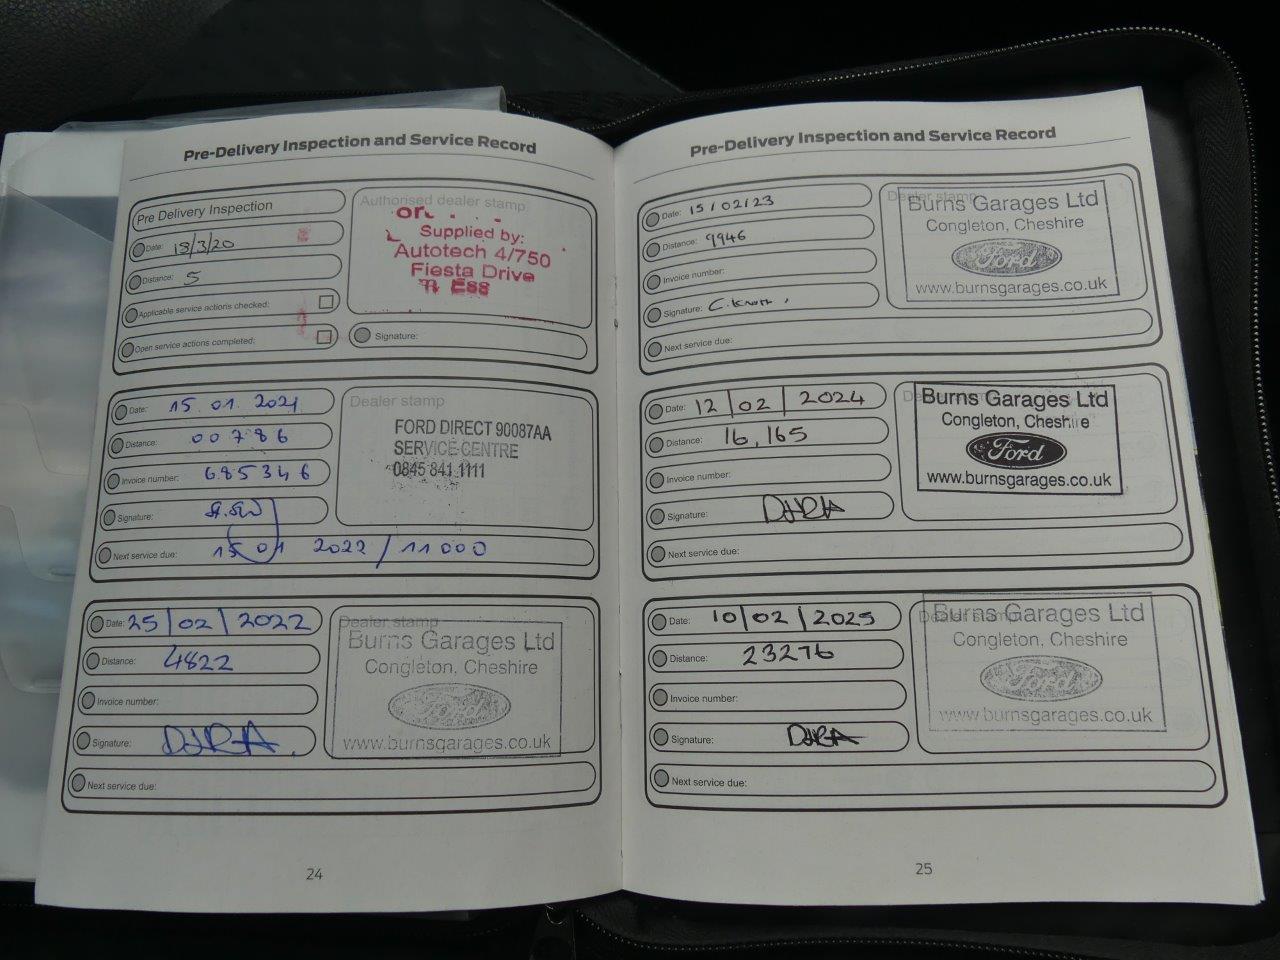 Pre-Delivery Inspection and Service Record
Pre Delivery Inspection
Date: 18/3/20
Distance: 5
Applicable service actions checked:
Open service actions completed:
Authorised dealer stamp
Supplied by:
Autotech 4/750
Fiesta Drive
ESS
Signature:
Date: 15 01 2021
Distance: 00786
Invoice number: 685346
Signature:
Next service due: 15 01 2022 / 11000
Dealer stamp
FORD DIRECT 90087AA
SERVICE CENTRE
0845 841 1111
Date: 25/02/2022
Distance: 4822
Invoice number:
Signature:
Next service due:
Dealer stamp
Burns Garages Ltd
Congleton, Cheshire
Ford
www.burnsgarages.co.uk
24
Pre-Delivery Inspection and Service Record
Date: 15/02/23
Distance: 9946
Invoice number:
Signature:
Next service due:
Dealer stamp
Burns Garages Ltd
Congleton, Cheshire
Ford
www.burnsgarages.co.uk
Date: 12/02/2024
Distance: 16,165
Invoice number:
Signature:
Next service due:
Burns Garages Ltd
Congleton, Cheshire
Ford
www.burnsgarages.co.uk
Date: 10/02/2025
Distance: 23276
Invoice number:
Signature:
Next service due:
Dealer stamp
Burns Garages Ltd
Congleton, Cheshire
Ford
www.burnsgarages.co.uk
25